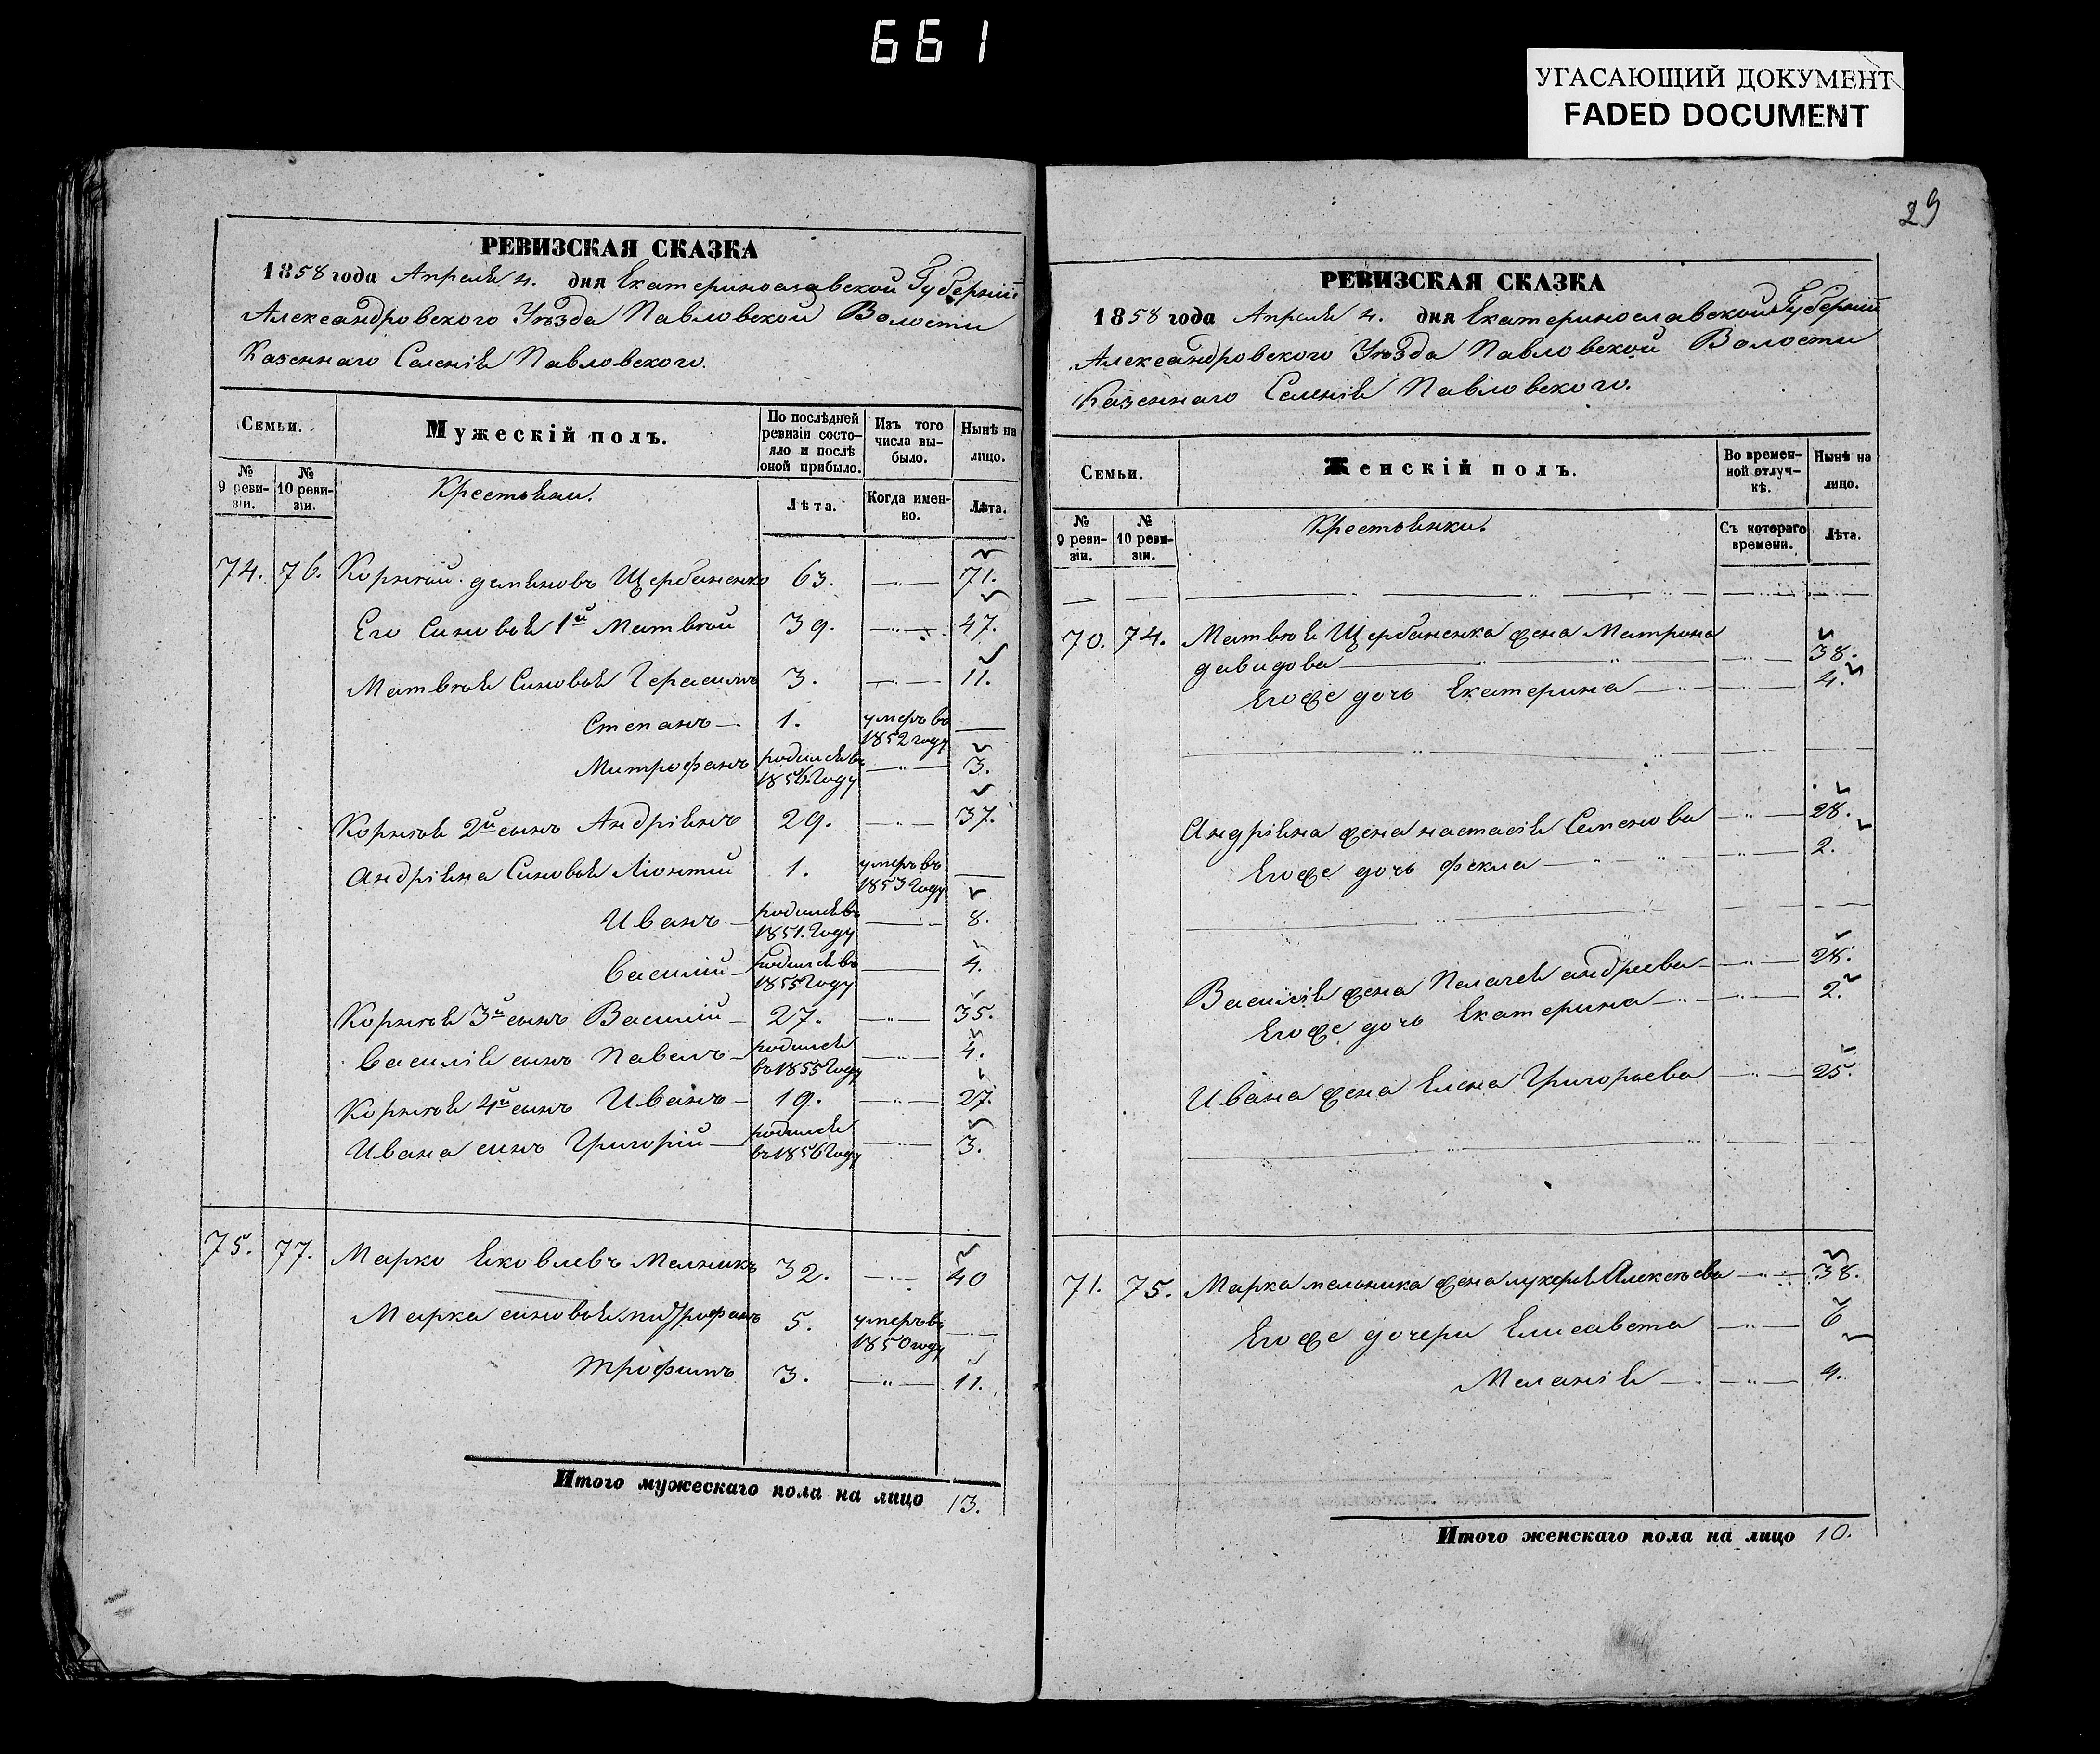 661
УГАСАЮЩИЙ ДОКУМЕНТ
FADED DOCUMENT
РЕВИЗСКАЯ СКАЗКА
1858 года Апреля 4. дня Екатеринославской Губерніи
Александровского Уѣзда Павловской Волости
Казеннаго Селенія Павловского.
Семьи.
Мужескій полъ.
По послѣдней ревизіи состояло и послѣ оной прибыло.
Изъ того числа выбыло.
Нынѣ на лицо.
№ 9 ревизіи.
№ 10 ревизіи.
Крестьяни.
Лѣта.
Когда именно.
Лѣта.
74. 76. Корнѣй Демяновъ Щербаненко 63. —"— 71.
Его Синовья 1й Матвѣй 39. —"— 47.
Матвѣя Синовья Герасимъ 3. —"— 11.
Степанъ — 1. умеръ въ 1852 году —
Митрофанъ родился въ 1856 Году —"— 3.
Корнѣя 2й сынъ Андріянъ 29. —"— 37.
Андріяна Синовья Ліонтій 1. умеръ въ 1853 Году —
Иванъ — родился въ 1851. Году — 8.
Василій — родился въ 1855 Году — 4.
Корнѣя 3й сынъ Василій — 27. —"— 35.
Василія сынъ Павелъ — родился въ 1855 Году —"— 4.
Корнѣя 4й сынъ Иванъ — 19. —"— 27.
Ивана синъ Григорій — родился въ 1856 Году —"— 3.
75. 77. Марко Яковлевъ Мелникъ 32. —"— 40
Марка синовья Митрофанъ 5. умеръ въ 1850 году —
Трофимъ 3. —"— 11.
Итого мужескаго пола на лицо 13.
29
РЕВИЗСКАЯ СКАЗКА
1858 года Апреля 4. дня Екатеринославской Губерніи
Александровского Уѣзда Павловской Волости
Казеннаго Селенія Павловского.
Семьи.
Женскій полъ.
Во временной отлучкѣ.
Нынѣ на лицо.
№ 9 ревизіи.
№ 10 ревизіи.
Крестьянки.
Съ котораго времени.
Лѣта.
70. 74. Матвѣя Щербаненка жена Матрона
Давидова — —"— 38.
Егоже дочь Екатерина —"— 4.
Андріяна жена Настасія Семенова —"— 28.
Егоже дочь Фекла —"— 2.
Василія жена Пелагея Андреева —"— 28.
Егоже дочь Екатерина —"— 2.
Ивана жена Елена Григорьева —"— 25.
71. 75. Марка Мельника жена Лукерія Алексѣева —"— 38.
Егоже дочери Елисавета —"— 6
Меланія —"— 4.
Итого женскаго пола на лицо 10.